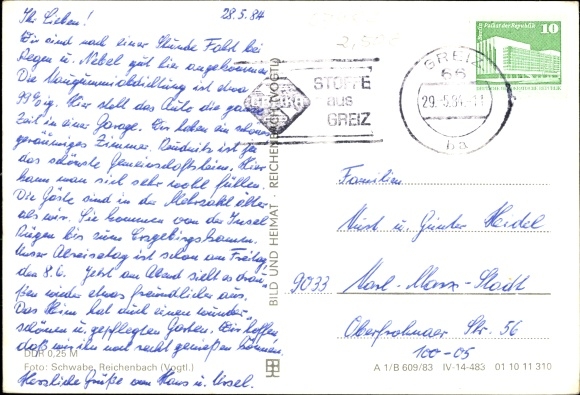 Ihr Lieben! 28.5.84
Wir sind nach einer Stunde Fahrt bei
Regen u. Nebel gut hier angekommen.
Die Mangummiabdichtung ist etwa
99%ig. Hier steht das Auto die ganze
Zeit in einer Garage. Wir haben ein schönes
geräumiges Zimmer. Raudnitz ist ja
das schönste Gemeinschaftsheim. Hier
kann man sich sehr wohl fühlen.
Die Gäste sind in der Mehrzahl älter
als wir. Sie kommen von der Insel
Rügen bis zum Erzgebirgskamm.
Unser Abreisetag ist schon am Freitag,
den 8.6. Jetzt am Abend sieht es drau-
ßen wieder etwas freundlicher aus.
Das Heim hat auch einen wunder-
schönen u. gepflegten Garten. Wir hoffen,
daß wir ihn noch recht genießen können.
Herzliche Grüße von Hans u. Ursel.
DDR 0,25 M
Foto: Schwabe, Reichenbach (Vogtl.)
BILD UND HEIMAT · REICHENBACH (VOGTL)
STOFFE
aus
GREIZ
GREIZ
66
29.-5.84-11
ba
Palast der Republik
10
Familien
u. Günter Heidel
9033 Karl-Marx-Stadt
Oberfrohnaer Str. 56
100-05
A 1/B 609/83 IV-14-483 01 10 11 310